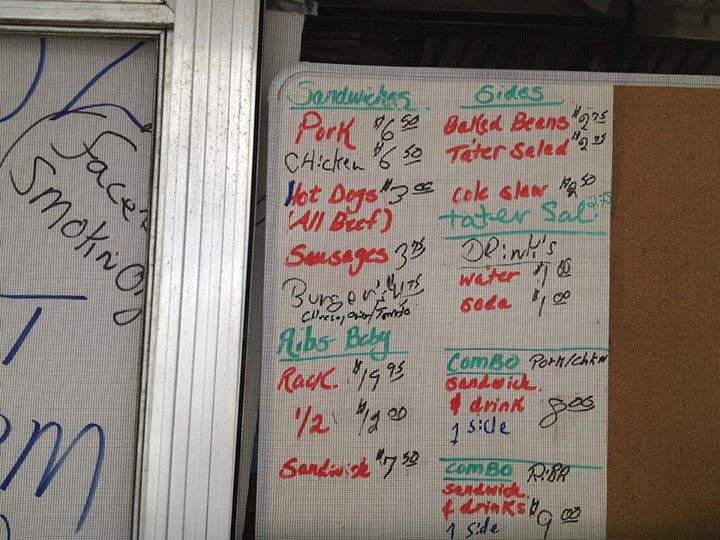 Sandwiches
Pork $6.50
CHicken $6.50
Hot Dogs $3.00
(All Beef)
Sausages 3.75
Burger's 4.75
Cheese, Onion/Tomato
Ribs Baby
Rack $19.95
1/2 $12.00
Sandwich $7.50
Sides
Baked Beans $2.75
Tater Salad $2.75
Cole slaw $2.50
tater Sal 2.75
DRink's
water $1.00
soda $1.00
ComBo Pork/chkn
sandwich
& drink 8.00
1 side
ComBO RiBR
sandwich
& drinks $9.00
1 side
Face
SmokinO